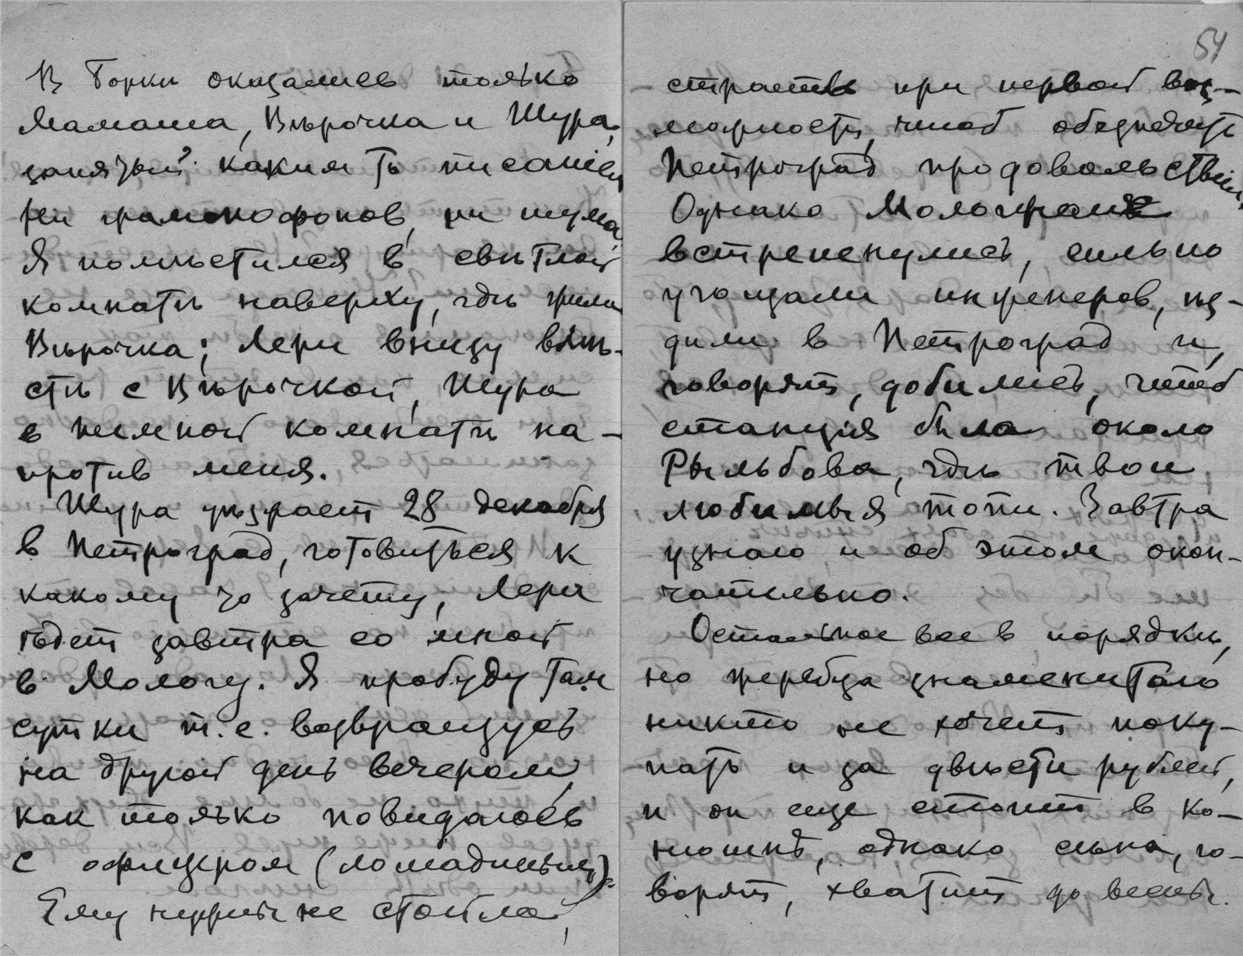 В Горки оказались только
Мамаша, Вѣрочка и Шура,
занятый? каким то писанием
ни грамофонов, ни шума
Я помѣстился в свѣтлой
комнатѣ наверху, гдѣ жила
Вѣрочка; Лери внизу вмѣ-
стѣ с Вѣрочкой, Шура
в темной комнатѣ на-
против меня.
Шура уѣзжает 28 декабря
в Петроград, готовиться к
какому то зачету, Лери
ѣдет завтра со мной
в Мологу. Я пробуду там
сутки т. е. возвращусь
на другой день вечером,
как только повидаюсь
с офицером (лошадиным).
Ему не стоила,
54
при первой воз-
можности, чтоб обезпечить
Петроград продовольствием
Однако Моложане
встрепенулись, сильно
угощали инженеров, ѣз-
дили в Петроград и,
говорят, добились, чтоб
станція была около
Рыльбова, гдѣ твои
любимыя топи. Завтра
узнаю и об этом окон-
чательно.
Остальное все в порядкѣ,
но жеребца знаменитаго
никто не хочет поку-
пать и за двѣсти рублей,
и он еще стоит в ко-
нюшнѣ, однако сѣна, го-
ворят, хватит до весны.